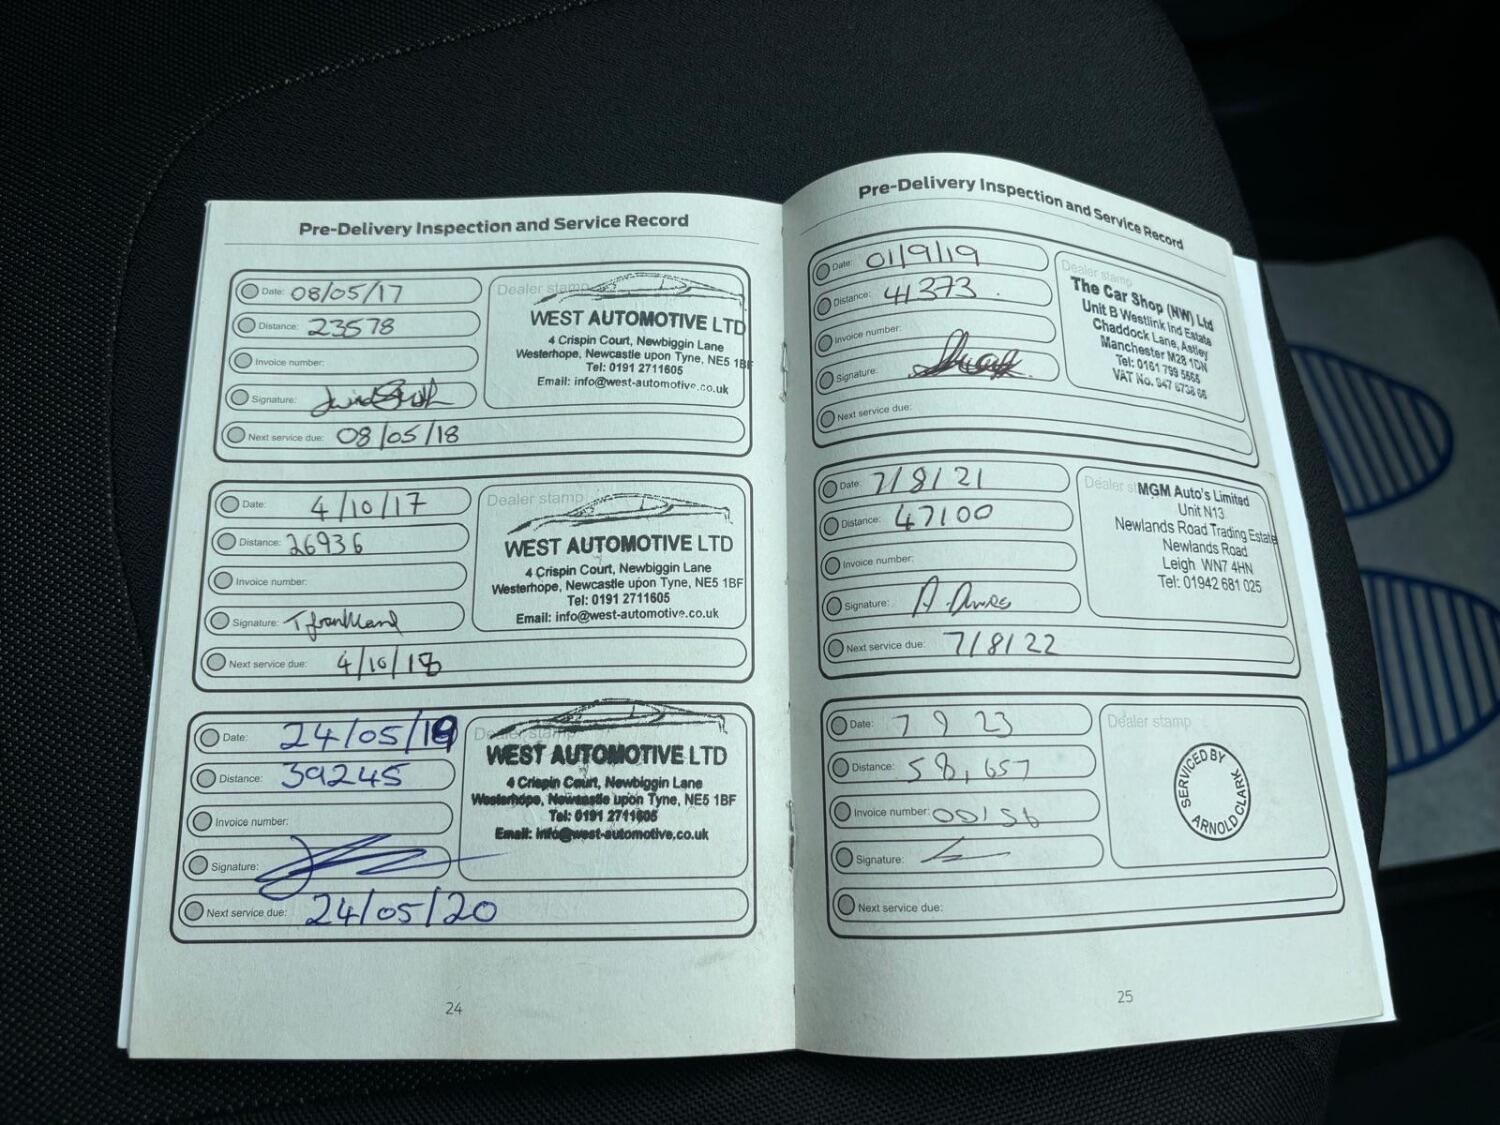 Pre-Delivery Inspection and Service Record
Date: 08/05/17
Distance: 23578
Invoice number:
Signature:
Next service due: 08/05/18
Dealer stamp
WEST AUTOMOTIVE LTD
4 Crispin Court, Newbiggin Lane
Westerhope, Newcastle upon Tyne, NE5 1BF
Tel: 0191 2711605
Email: info@west-automotive.co.uk
Date: 4/10/17
Distance: 26936
Invoice number:
Signature: T frankland
Next service due: 4/10/18
Dealer stamp
WEST AUTOMOTIVE LTD
4 Crispin Court, Newbiggin Lane
Westerhope, Newcastle upon Tyne, NE5 1BF
Tel: 0191 2711605
Email: info@west-automotive.co.uk
Date: 24/05/19
Distance: 39245
Invoice number:
Signature:
Next service due: 24/05/20
Dealer stamp
WEST AUTOMOTIVE LTD
4 Crispin Court, Newbiggin Lane
Westerhope, Newcastle upon Tyne, NE5 1BF
Tel: 0191 2711605
Email: info@west-automotive.co.uk
24
Pre-Delivery Inspection and Service Record
Date: 01/9/19
Distance: 41373
Invoice number:
Signature:
Next service due:
Dealer stamp
The Car Shop (NW) Ltd
Unit B Westlink Ind Estate
Chaddock Lane, Astley
Manchester M28 1DN
Tel: 0161 799 5555
VAT No. 847 6738 66
Date: 7/8/21
Distance: 47100
Invoice number:
Signature:
Next service due: 7/8/22
Dealer st
MGM Auto's Limited
Unit N13
Newlands Road Trading Estate
Newlands Road
Leigh WN7 4HN
Tel: 01942 681 025
Date: 7 9 23
Distance: 58,657
Invoice number: 00156
Signature:
Next service due:
Dealer stamp
SERVICED BY
ARNOLD CLARK
25